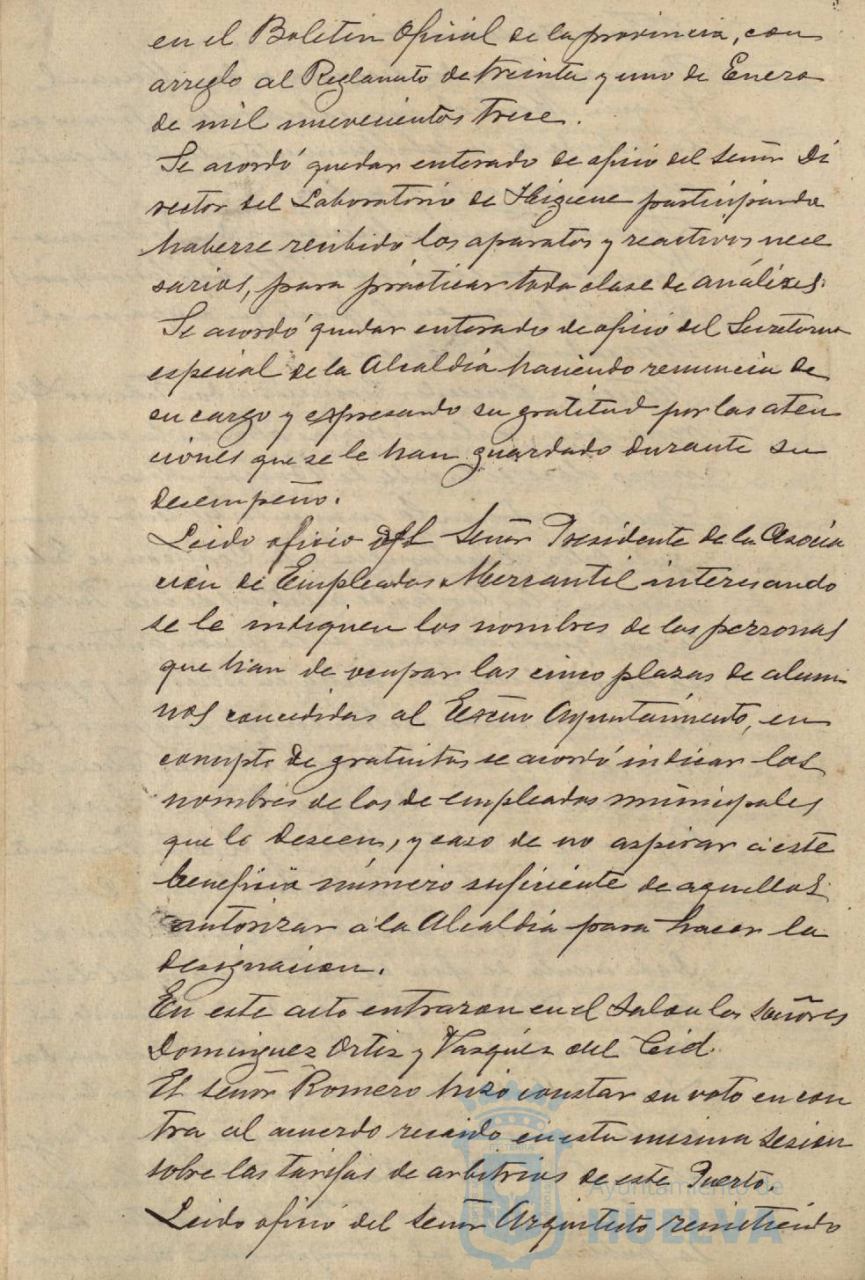 en el Boletin Oficial de la provincia, con
arreglo al Reglamento de treinta y uno de Enero
de mil nuevecientos trece.
Se acordó quedar enterado de oficio del señor Di
rector del Laboratorio de Higiene participando
haberse recibido los aparatos y reactivos nece
sarios, para prácticar toda clase de análizes.
Se acordó quedar enterado de oficio del Secretario
especial de la Alcaldia haciendo renuncia de
su cargo y expresando su gratitud por las aten
ciones que se le han guardado durante su
desempeño.
Leido oficio del Señor Presidente de la Asocia
ción de Empleados Mercantil interesando
se le indiquen los nombres de las personas
que han de ocupar las cinco plazas de alum
nos concedidas al Excmo Ayuntamiento, en
concepto de gratuitas se acordó indicar los
nombres de los de empleados municipales
que lo deseen, y caso de no aspirar á este
beneficio número suficiente de aquellos
autorizar á la Alcaldia para hacer la
designacion.
En este acto entraron en el Salon los Señores
Dominguez Ortiz y Vazquez del Cid.
El señor Romero hizo constar su voto en con
tra al acuerdo recaido en esta misma sesion
sobre las tarifas de arbitrios de este Puerto.
Leido oficio del señor Arquitecto remitiendo
Ayuntamiento de
HUELVA